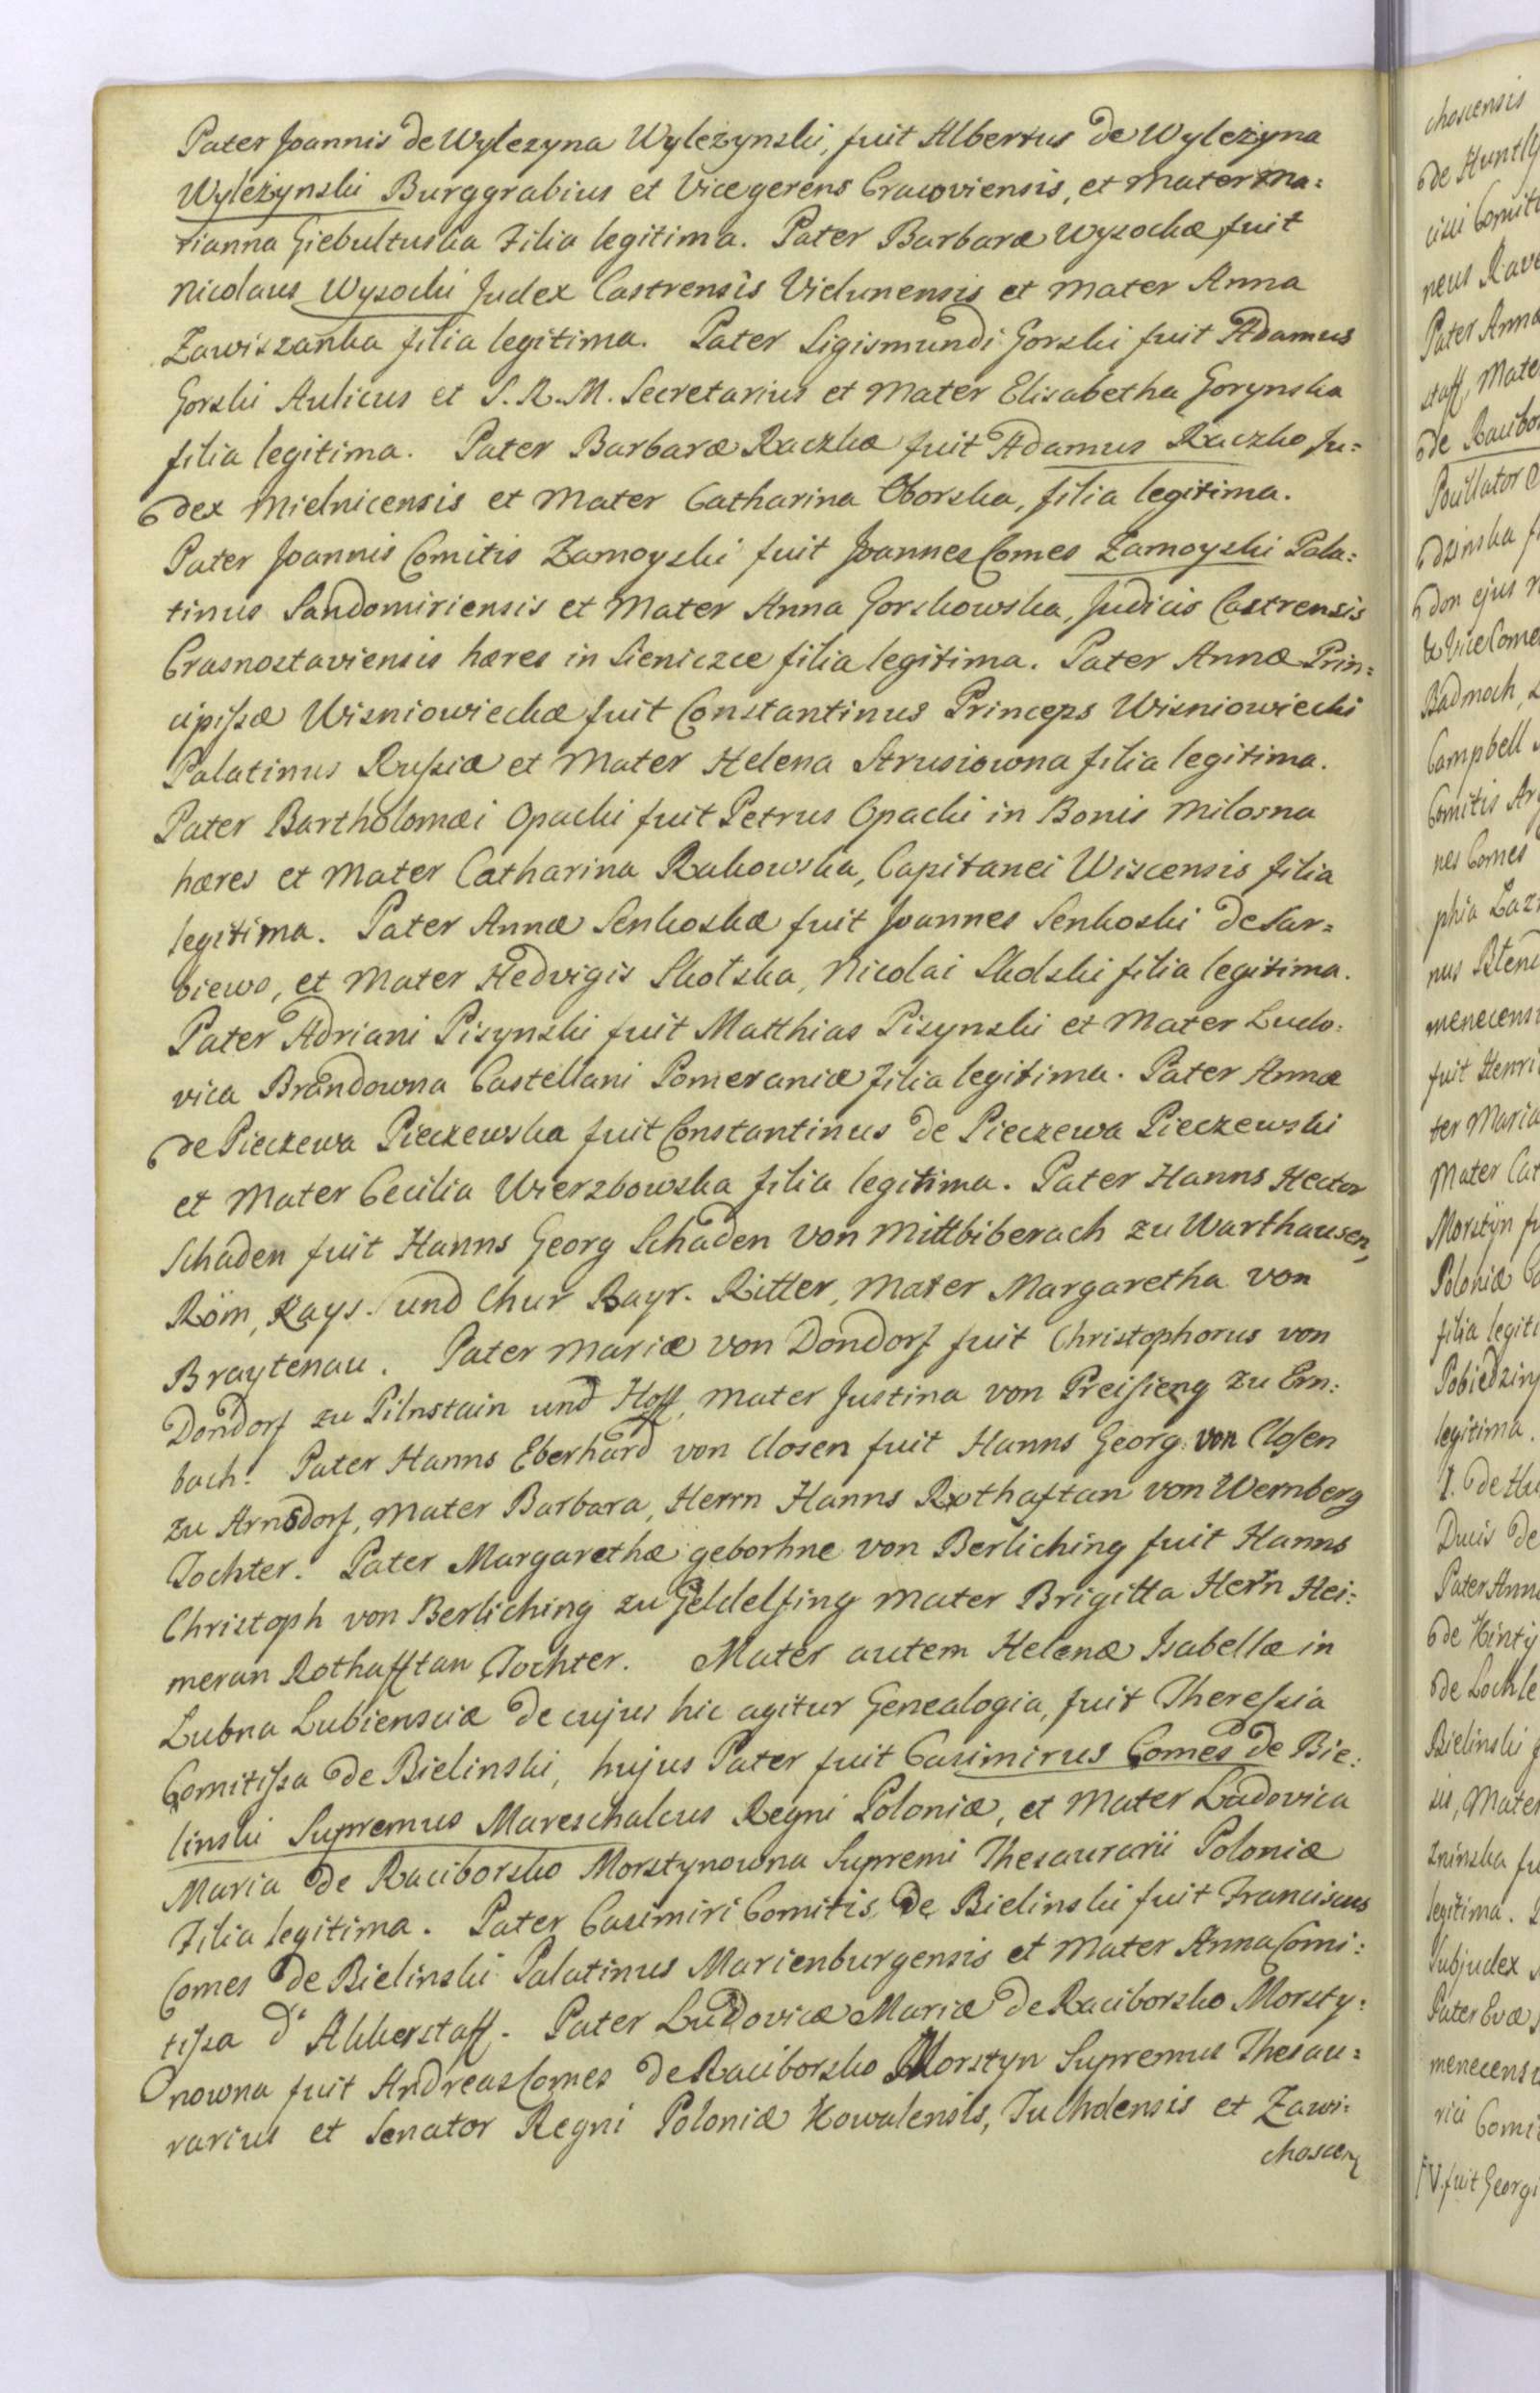 Pater Joannis de Wylezyna Wyleżynski, fuit Albertus de Wyleżyna
Wyleżynski Burggrabius et Vicegerens Cracoviensis, et Mater Ma=
rianna Giebultuska Filia legitima. Pater Barbaræ Wysockæ fuit
Nicolaus Wysocki Judex Castrensis Vielunensis et Mater Anna
Zawiszanka filia legitima. Pater Sigismundi Gorski fuit Adamus
Gorski Aulicus et S. R. M. Secretarius et Mater Elisabetha Gorynska
filia legitima. Pater Barbaræ Raczkæ fuit Adamus Raczko Ju=
dex Mielnicensis et Mater Catharina Oborska, filia legitima.
Pater Joannis Comitis Zamoyski fuit Joannes Comes Zamoyski Pala=
tinus Sandomiriensis et Mater Anna Gorskowska, Judicis Castrensis
Crasnostaviensis hæres in Sieniczce filia legitima. Pater Annæ Prin=
cipissæ Wisniowieckæ fuit Constantinus Princeps Wisniowiecki
Palatinus Russiæ et Mater Helena Strusiowna filia legitima.
Pater Bartholomæi Opacki fuit Petrus Opacki in Bonis Milosna
hæres et Mater Catharina Rakowska, Capitanei Wiscensis filia
legitima. Pater Annæ Senkoskæ fuit Joannes Senkoski de Sar=
biewo, et Mater Hedvigis Skotska, Nicolai Skolski filia legitima.
Pater Adriani Pisynski fuit Matthias Pisynski et Mater Ludo=
vica Brandowna Castellani Pomeraniæ filia legitima. Pater Annæ
de Pieczewa Pieczewska fuit Constantinus de Pieczewa Pieczewski
et Mater Cecilia Wierzbowska filia legitima. Pater Hanns Hector
Schaden fuit Hanns Georg Schaden von Mittbiberach zu Warthausen,
Röm, Kays. und Chur Bayr. Ritter, Mater Margaretha von
Braytenau. Pater Mariæ von Dondorf fuit Christophorus von
Dondorf zu Pilnstain und Hoff, Mater Justina von Preisieng zu Ern=
bach. Pater Hanns Eberhard von Closen fuit Hanns Georg von Closen
zu Arnsdorf, Mater Barbara, Herrn Hanns Rothaftan von Wernberg
Tochter. Pater Margarethæ geborhne von Berliching fuit Hanns
Christoph von Berliching zu Geldelfing Mater Brigitta Herrn Hei=
meran Rothafftan Tochter. Mater autem Helenæ Isabellæ in
Lubna Lubiensciæ de cujus hic agitur Genealogia, fuit Theressia
Comitissa de Bielinski, hujus Pater fuit Casimirus Comes de Bie=
linski Supremus Mareschalcus Regni Poloniæ, et Mater Ludovica
Maria de Raciborsko Morstynowna Supremi Thesaurarii Poloniæ
Filia legitima. Pater Casimiri Comitis de Bielinski fuit Franciscus
Comes de Bielinski Palatinus Marienburgensis et Mater Anna Comi=
tissa d' Akkerstaff. Pater Ludovicæ Mariæ de Raciborsko Morsty=
nowna fuit Andreas Comes de Raciborsko Morstyn Supremus Thesau=
rarius et Senator Regni Poloniæ Kowalensis, Tucholensis et Zawi=
choscen
choscensis
de Huntly
neus
Pater Annæ
staff, Mate
de Racibo
dzinska
don ejus
Badnoch
Campbell
Comitis Ar
nes Comes
phia
menecens
fuit Henri
ter Maria
Mater Cat
Morstÿn
Poloniæ
filia legiti
legitima.
Ducis de
Pater Anna
de Kinty
de Lochle
Bielinski
sis, Mater
zninska
legitima.
Subjudex
Pater Evæ
menecens
ricii Comi
IV. fuit Georgi